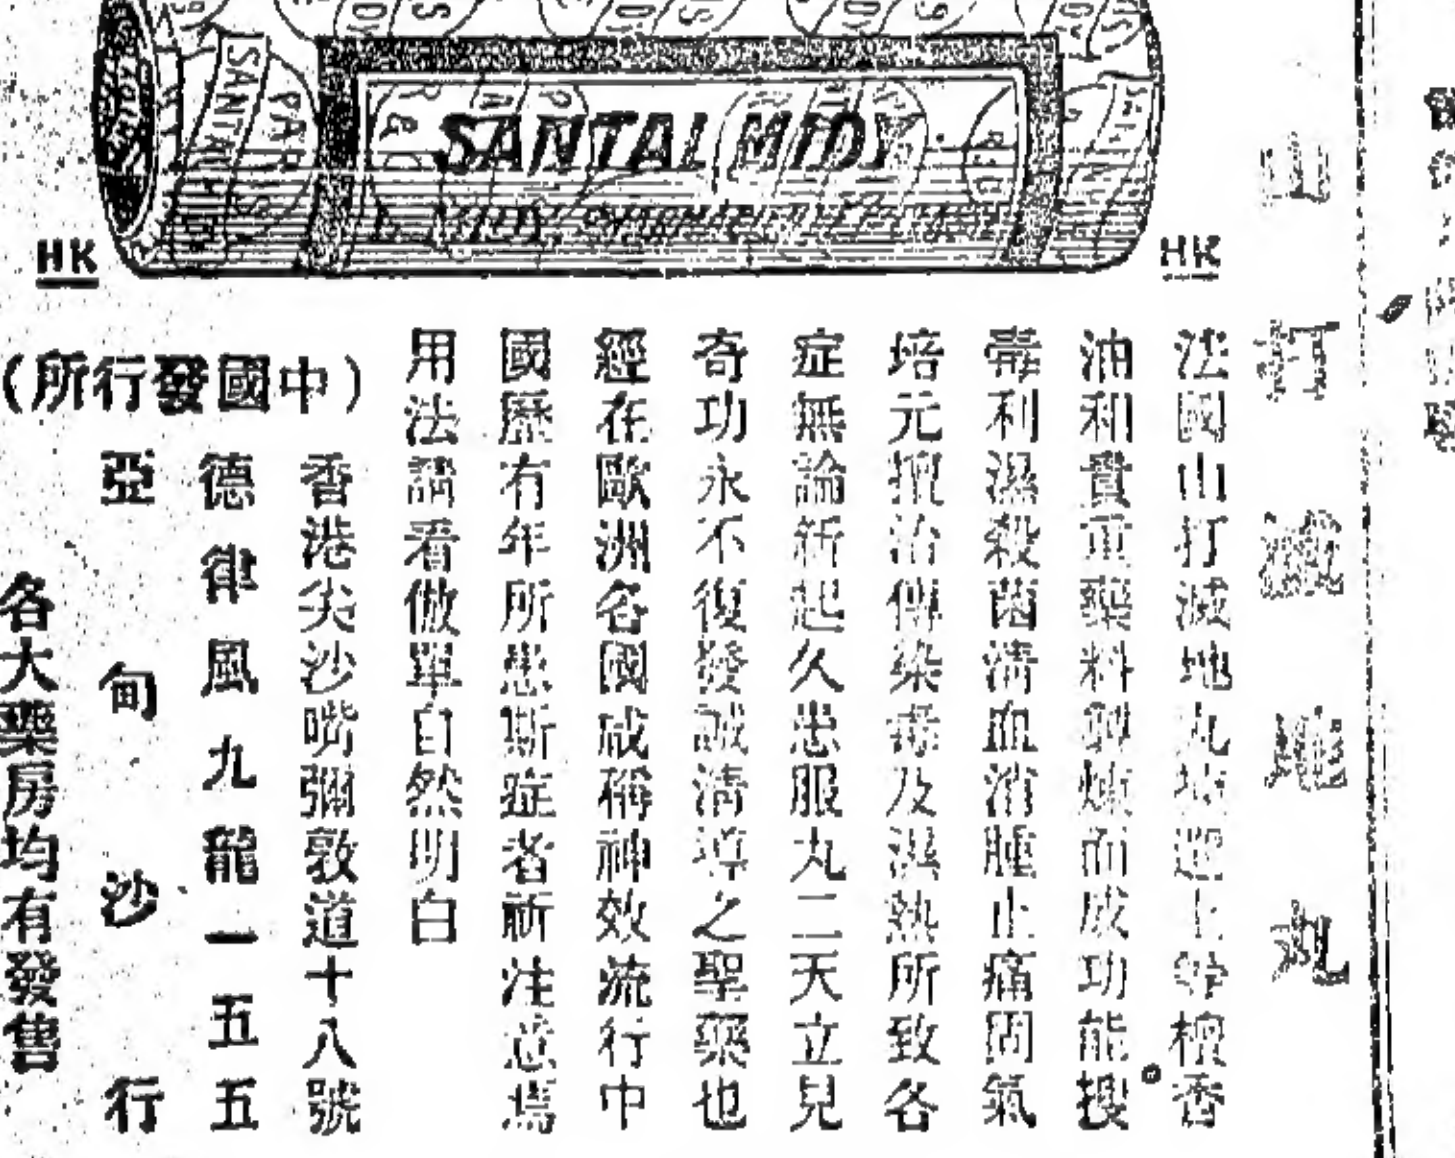 SANTAL MIDY
HK
HK
山打滅地丸
法國山打滅地丸均選上等檀香
油和貴重藥料製煉而成功能搜
毒利濕殺菌清血消腫止痛固氣
培元擅治傳染毒及濕熱所致各
症無論新起久患服丸二天立見
奇功永不復發誠清導之聖藥也
經在歐洲各國咸稱神效流行中
國歷有年所患斯症者祈注意焉
用法請看倣單自然明白
(中國發行所)
香港尖沙嘴彌敦道十八號
德律風九龍一五五
亞甸沙行
各大藥房均有發售